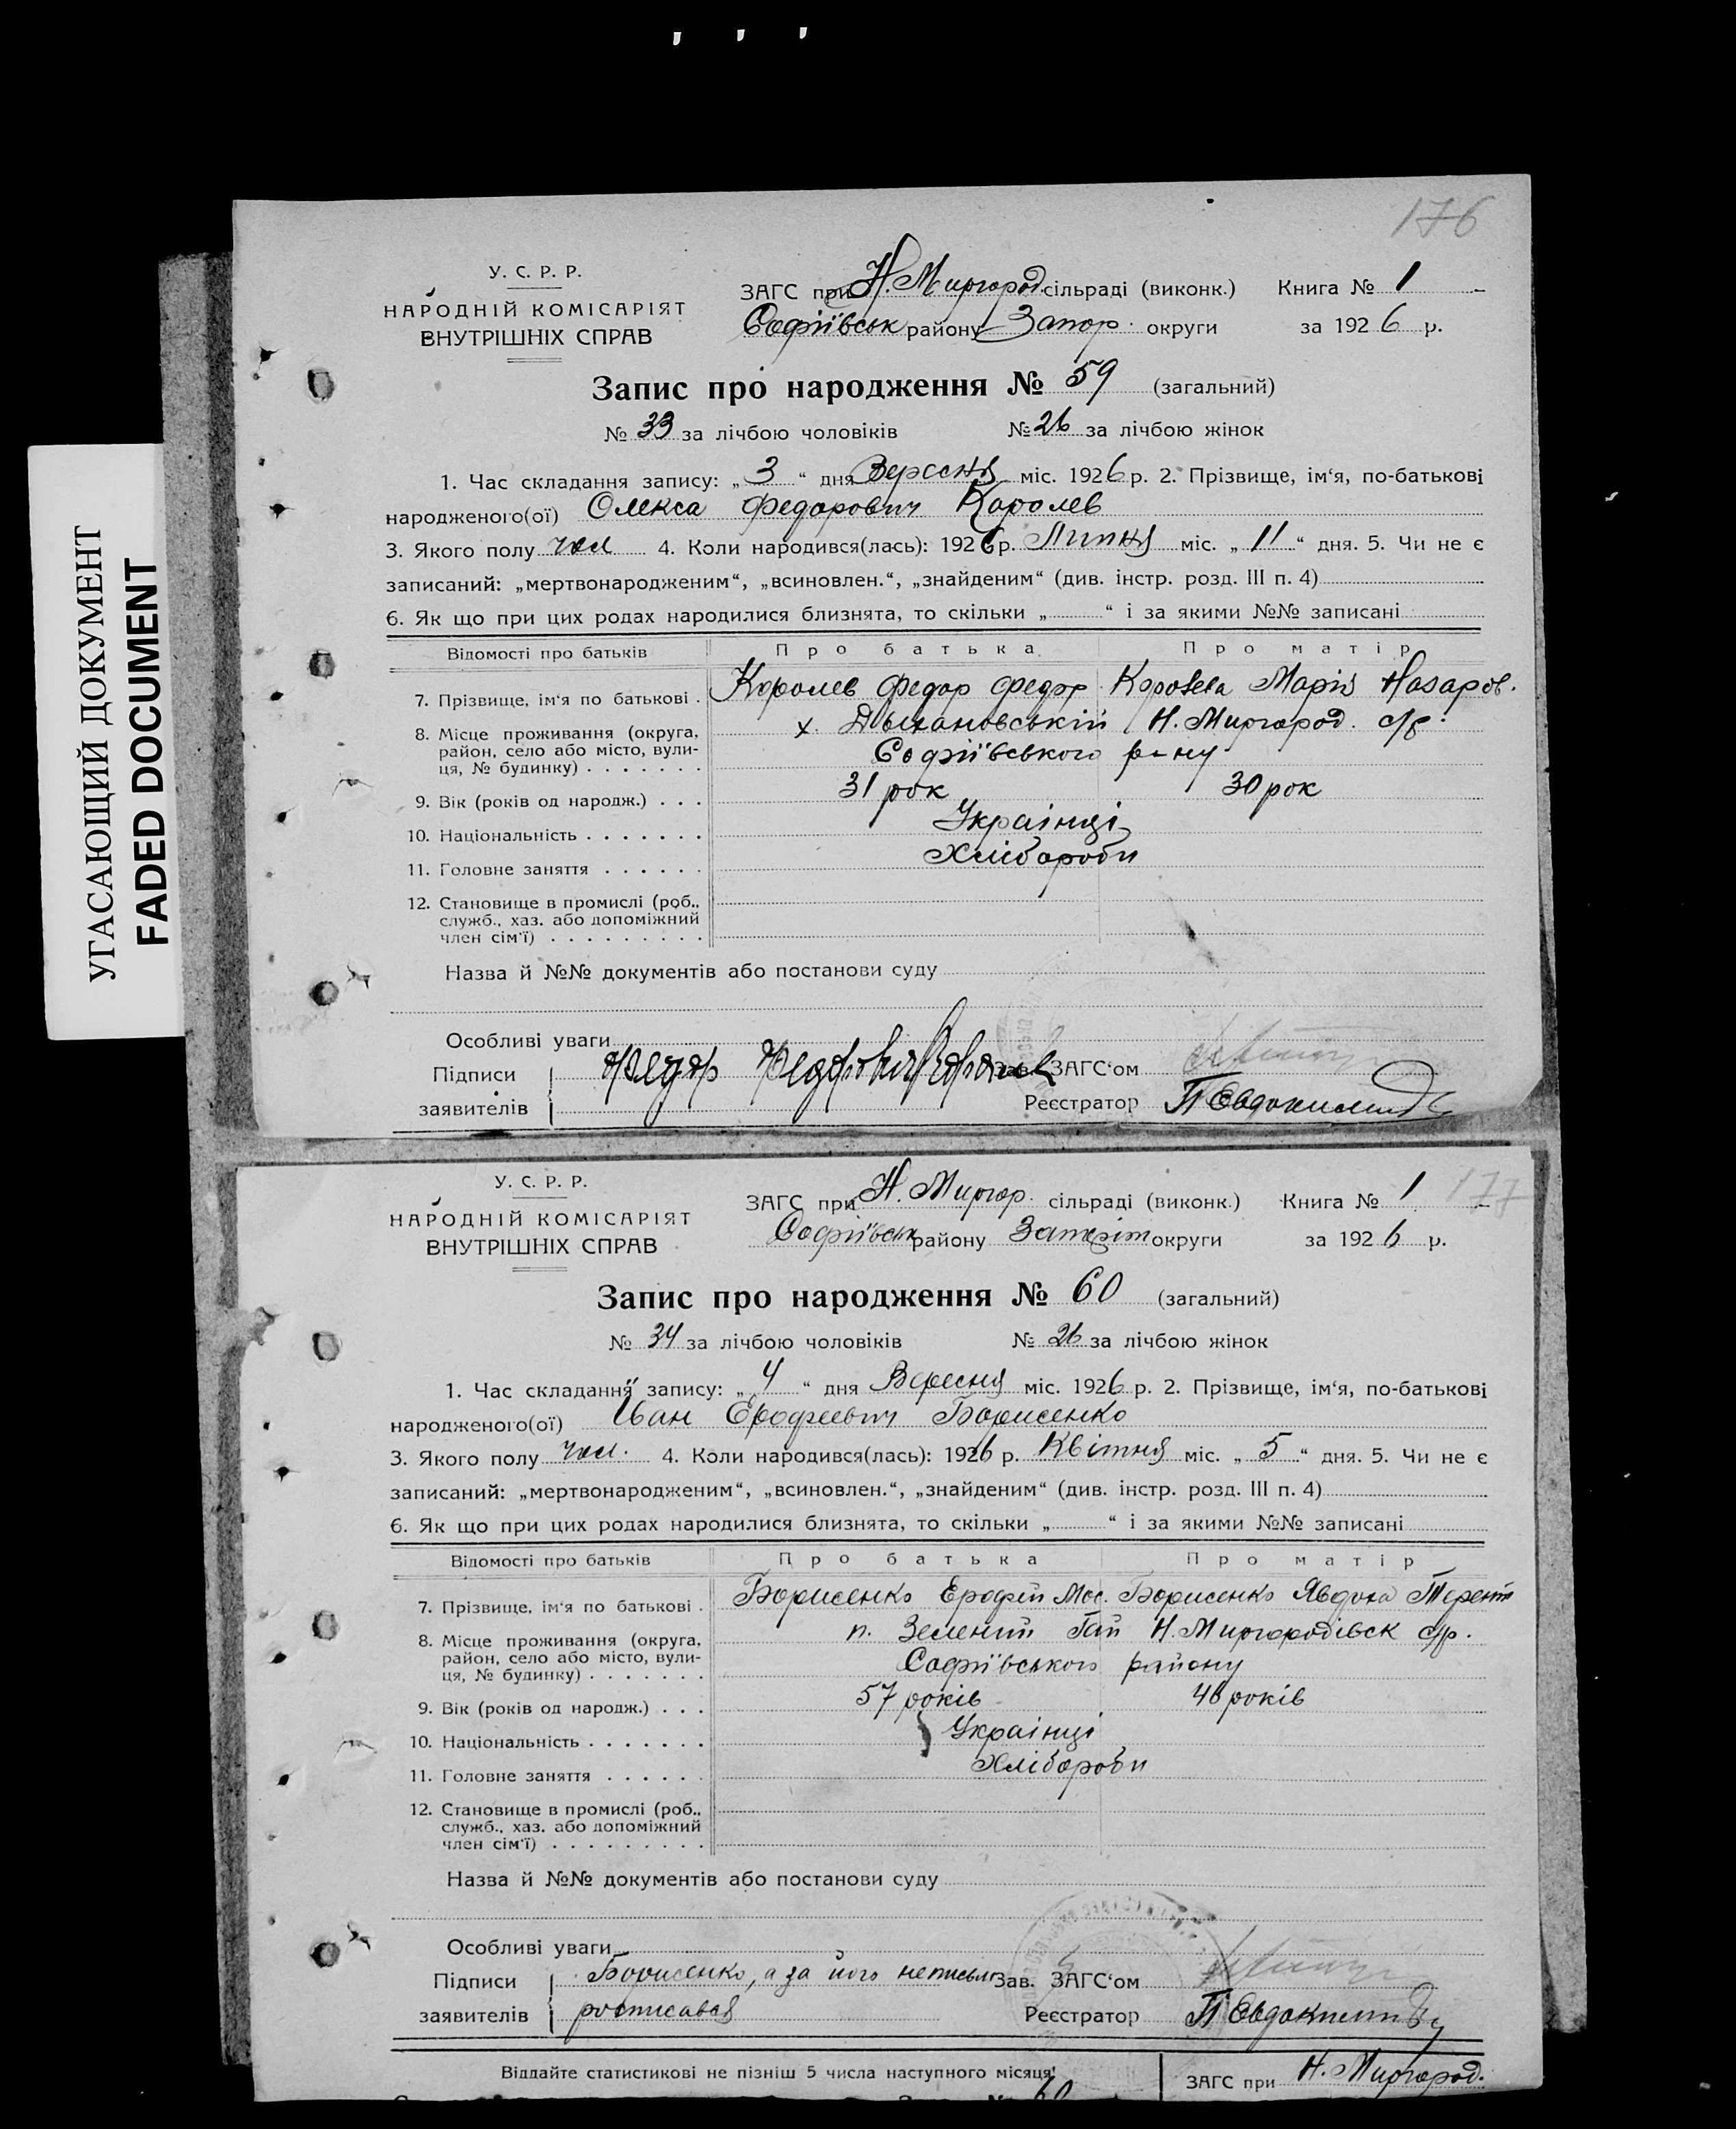 176
УГАСАЮЩИЙ ДОКУМЕНТ
FADED DOCUMENT
У. С. Р. Р.
НАРОДНІЙ КОМІСАРІЯТ
ВНУТРІШНІХ СПРАВ
ЗАГС при Н. Миргород. сільраді (виконк.) Книга № 1
Софіївськ району Запор. округи за 1926 р.
Запис про народження № 59 (загальний)
№ 33 за лічбою чоловіків № 26 за лічбою жінок
1. Час складання запису: „ 3 “ дня Вересня міс. 1926 р. 2. Прізвище, ім‘я, по-батькові
народженого(ої) Олекса Федорович Королев
3. Якого полу чол 4. Коли народився(лась): 1926 р. Липня міс. „ 11 “ дня. 5. Чи не є
записаний: „мертвонародженим“, „всиновлен.“, „знайденим“ (див. інстр. розд. III п. 4)
6. Як що при цих родах народилися близнята, то скільки „ “ і за якими №№ записані
Відомості про батьків Про батька Про матір
7. Прізвище, ім‘я по батькові . Королев Федор Федор Королева Марія Назаров.
8. Місце проживання (округа, х. Н. Миргород. с/р.
район, село або місто, вули- Софіївського р-ну
ця, № будинку) . . . . . . .
9. Вік (років од народж.) . . . 31 рок 30 рок
10. Національність . . . . . . . Украінці
11. Головне заняття . . . . . . Хлібороби
12. Становище в промислі (роб.,
служб., хаз. або допоміжний
член сім‘ї) . . . . . . . . .
Назва й №№ документів або постанови суду
Особливі уваги
Підписи Федор Федорович Королев Зав. ЗАГС‘ом
заявителів Реєстратор
У. С. Р. Р.
НАРОДНІЙ КОМІСАРІЯТ
ВНУТРІШНІХ СПРАВ
ЗАГС при Н. Миргор. сільраді (виконк.) Книга № 1 177
Софіївськ району округи за 1926 р.
Запис про народження № 60 (загальний)
№ 34 за лічбою чоловіків № 26 за лічбою жінок
1. Час складання запису: „ 4 “ дня Вересня міс. 1926 р. 2. Прізвище, ім‘я, по-батькові
народженого(ої) Іван Ерофеевич Борисенко
3. Якого полу чол. 4. Коли народився(лась): 1926 р. Квітня міс. „ 5 “ дня. 5. Чи не є
записаний: „мертвонародженим“, „всиновлен.“, „знайденим“ (див. інстр. розд. III п. 4)
6. Як що при цих родах народилися близнята, то скільки „ “ і за якими №№ записані
Відомості про батьків Про батька Про матір
7. Прізвище, ім‘я по батькові . Борисенко Ерофій Мос. Борисенко Явдоха Терент
8. Місце проживання (округа, п. Зелений Гай Н. Миргородівск с/р.
район, село або місто, вули- Софіївського району
ця, № будинку) . . . . . . .
9. Вік (років од народж.) . . . 57 років років
10. Національність . . . . . . . Украінці
11. Головне заняття . . . . . . Хлібороби
12. Становище в промислі (роб.,
служб., хаз. або допоміжний
член сім‘ї) . . . . . . . . .
Назва й №№ документів або постанови суду
Особливі уваги
Підписи Борисенко, а за його неписьм Зав. ЗАГС‘ом
заявителів росписався Реєстратор
Віддайте статистикові не пізніш 5 числа наступного місяця!
ЗАГС при Н. Миргород.
60